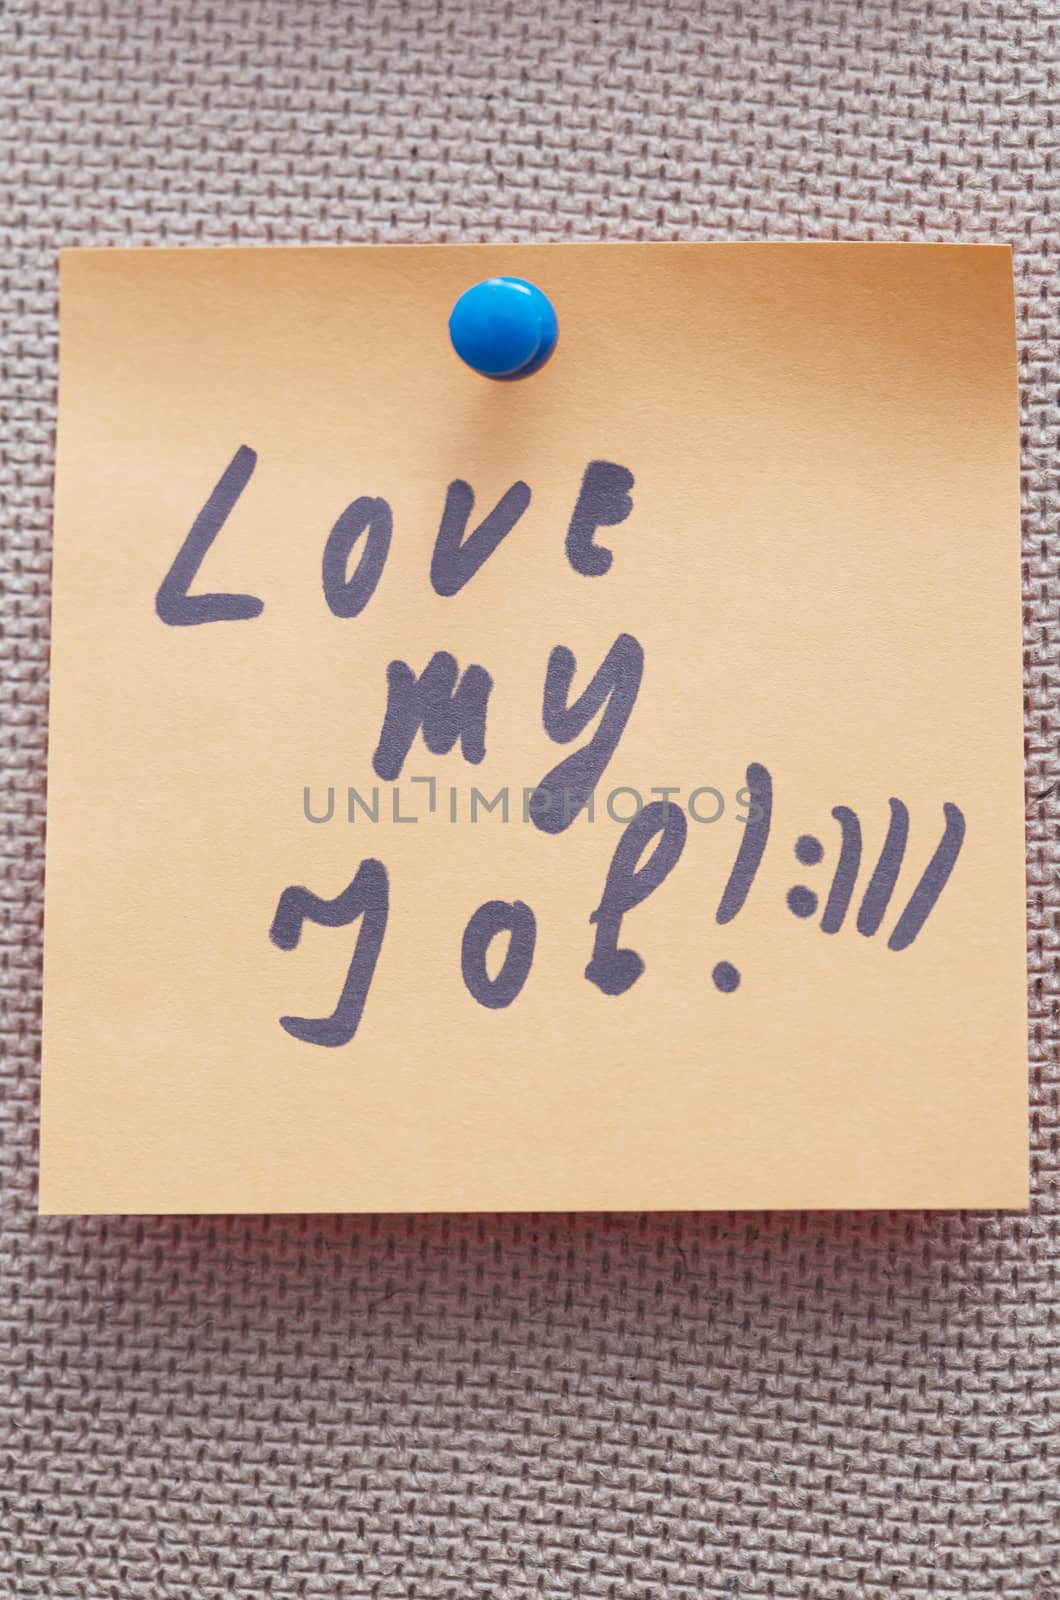 Love
my
Job!:)))
UNLIMPHOTOS